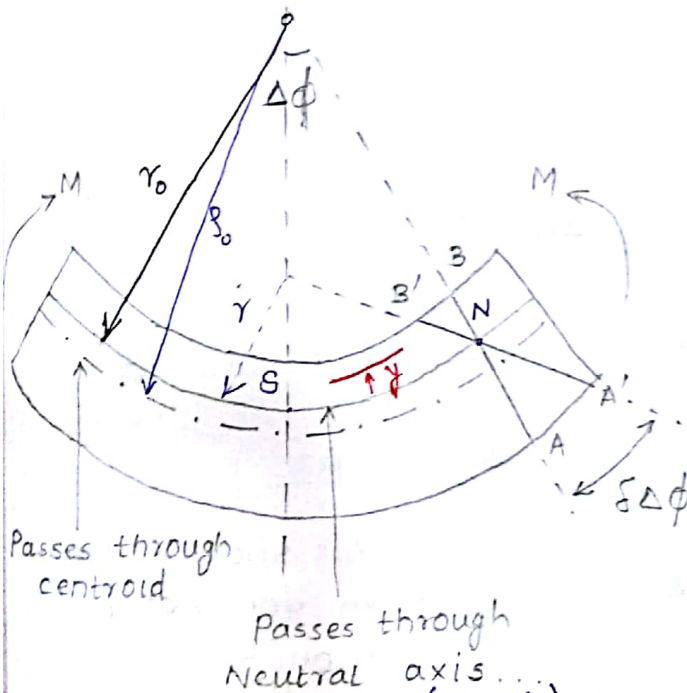 O
Δφ
M
r₀
ρ₀
M
r
B'
B
N
S
y
A'
A
δΔφ
Passes through
centroid
Passes through
Neutral axis...